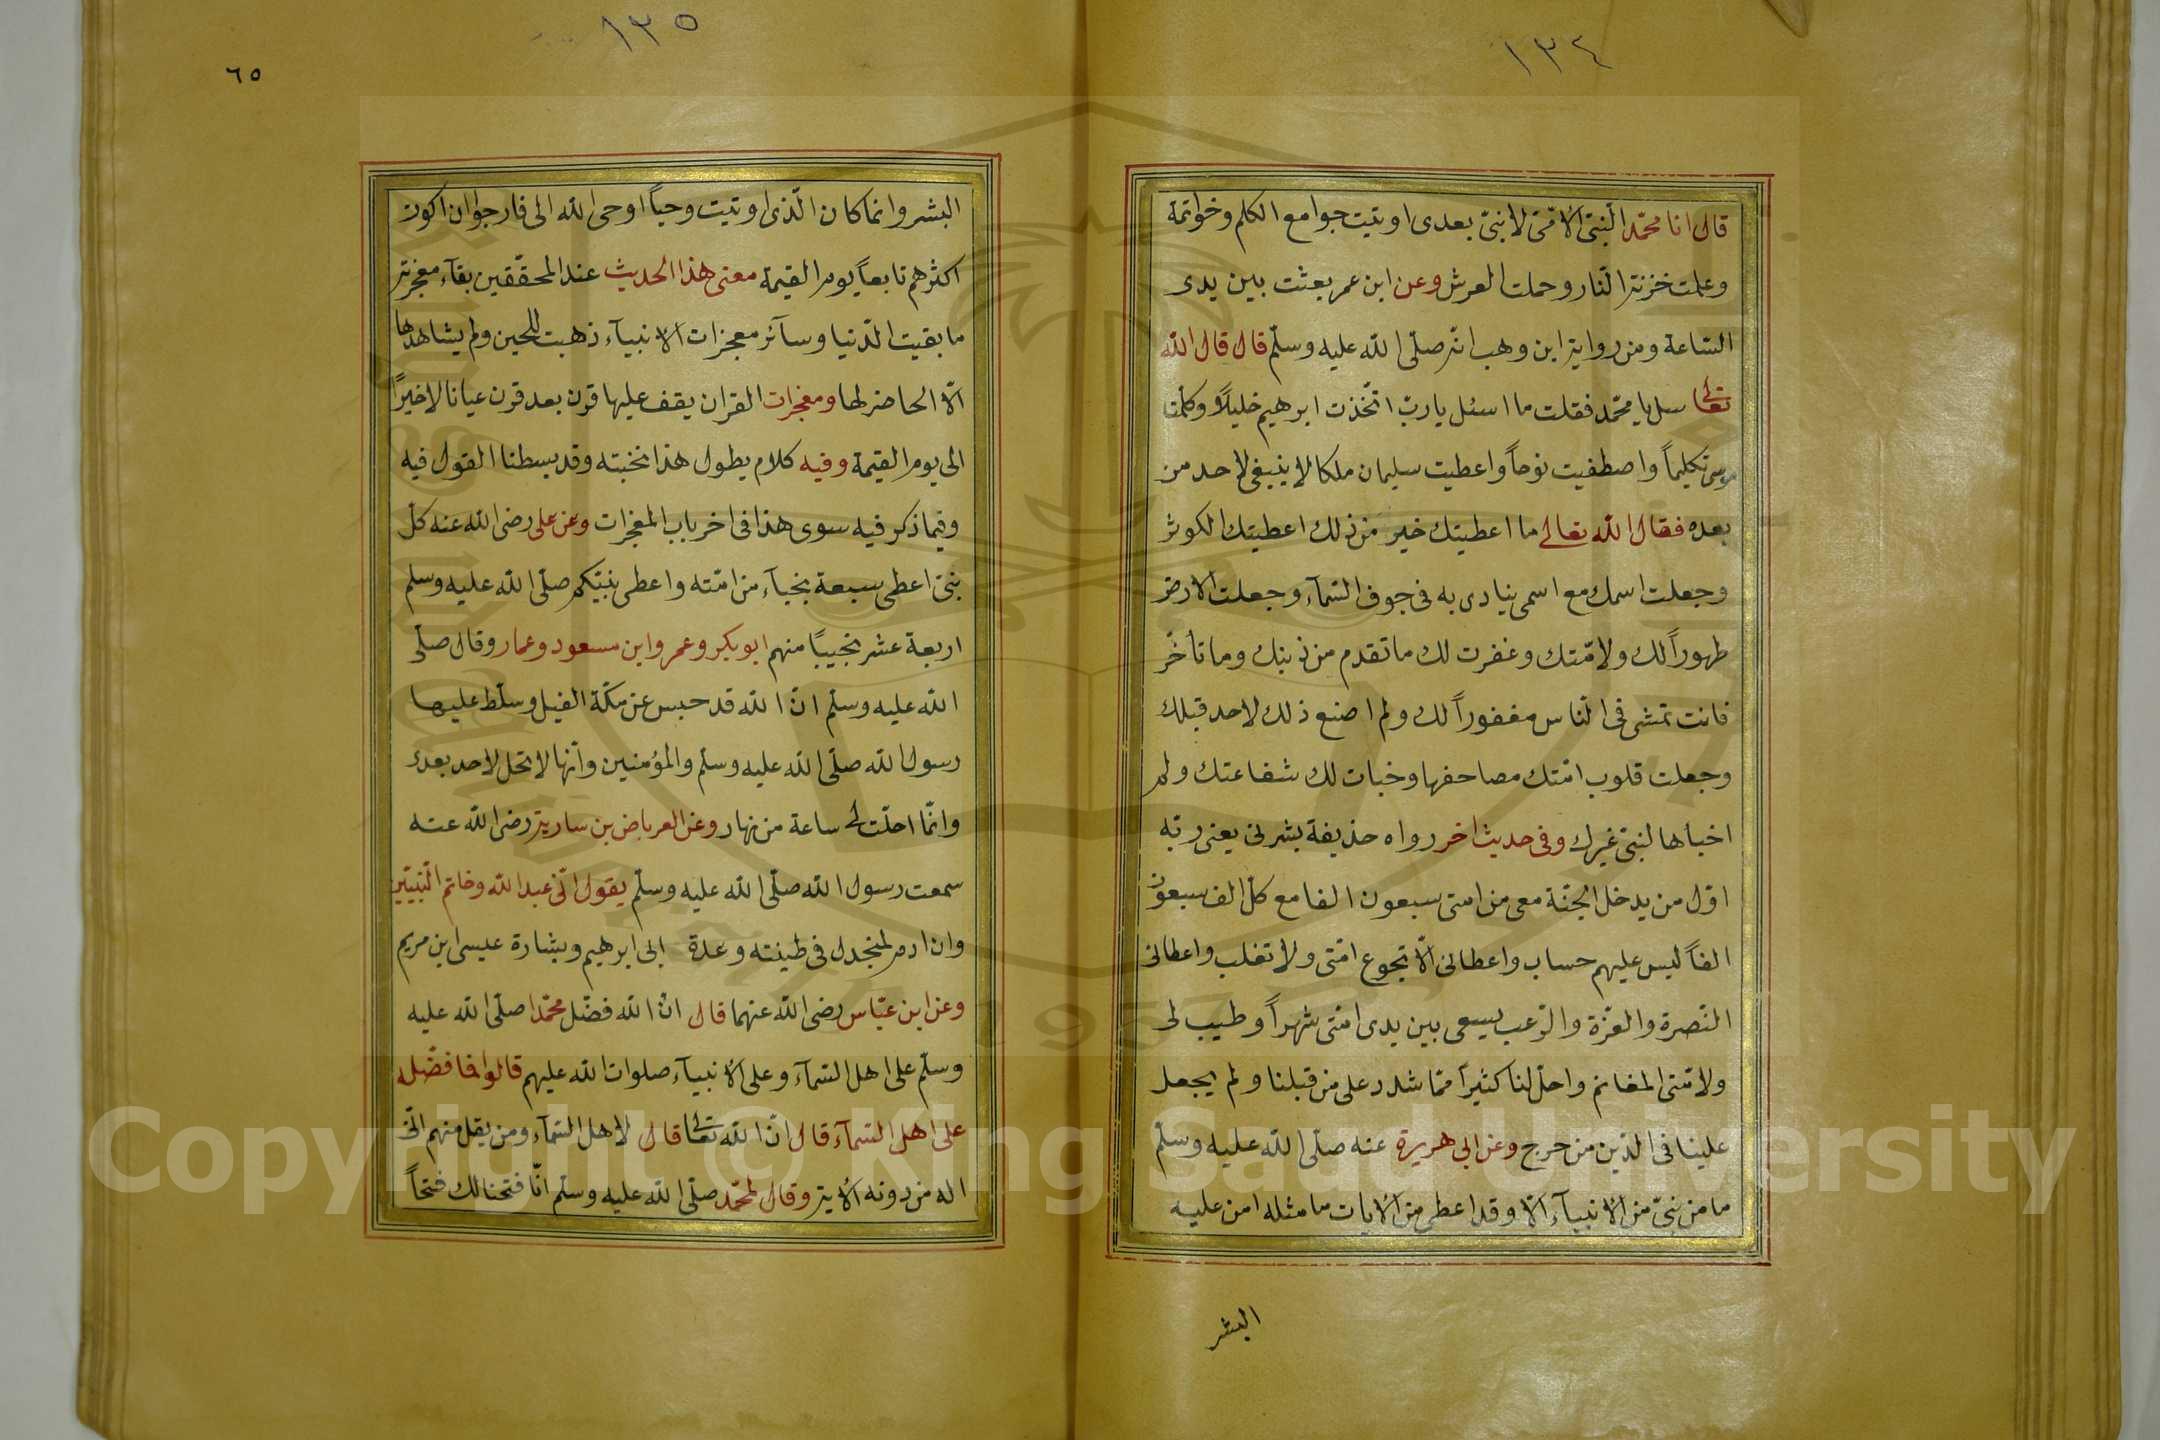 ١٣٤
قال انا محمّد النّبيّ الأمّيّ لا نبيّ بعدى اوتيت جوامع الكلم وخواتمة
وعلمت خزنة النّار وحملت العرش وعن ابن عمر بعثت بين يدى
السّاعة ومن رواية ابن وهب انّه صلّى الله عليه وسلّم قال قال الله
تعالى سل يا محمّد فقلت ما اسئل يا ربّ اتّخذت ابرهيم خليلاً وكلّمت
موسى تكليماً واصطفيت نوحاً واعطيت سليمان ملكا لا ينبغى لاحد من
بعده فقال الله تعالى ما اعطيتك خير من ذلك اعطيتك الكوثر
وجعلت اسمك مع اسمى ينادى به فى جوف السّمآء وجعلت الارض
طهوراً لك ولامّتك وغفرت لك ما تقدم من ذنبك وما تأخّر
فانت تمشى فى النّاس مغفوراً لك ولم اصنع ذلك لاحد قبلك
وجعلت قلوب امّتك مصاحفها وخبات لك شفاعتك ولم
اخبأها لنبيّ غيرك وفى حديث اخر رواه حذيفة بشرنى يعنى ربّه
اوّل من يدخل الجنّة معى من امتى سبعون الفا مع كلّ الف سبعون
الفاً ليس عليهم حساب واعطانى الّا تجوع امّتى ولا تغلب واعطانى
النّصرة والعزّة والرّعب يسعى بين يدى امّتى شهراً وطيب لى
ولامّتى المغانم واحلّ لنا كثيراً ممّا شدد على من قبلنا ولم يجعل
علينا فى الدّين من حرج وعن ابى هريرة عنه صلّى الله عليه وسلّم
ما من نبيّ من الأنبيآء الّا وقد اعطى من الأيات ما مثله امن عليه
البشر
١٣٥
٦٥
البشر وانما كان الّذى اوتيت وحياً اوحى الله الى فارجوا ان اكون
اكثرهم تابعاً يوم القيمة معنى هذا الحديث عند المحقّقين بقآء معجزته
ما بقيت الدّنيا وسآئر معجزات الانبيآء ذهبت للحين ولم يشاهدها
الّا الحاضر لها ومعجزات القران يقف عليها قرن بعد قرن عيانا لا خبرًا
الى يوم القيمة وفيه كلام يطول هذا نخبته وقد بسطنا القول فيه
وفيما ذكر فيه سوى هذا فى اخر باب المعجزات وعن على رضى الله عنه كلّ
نبىّ اعطى سبعة نجبآء من امّته واعطى نبيّكم صلّى الله عليه وسلم
اربعة عشر نجيبًا منهم ابو بكر وعمر وابن مسعود وعمار وقال صلّى
الله عليه وسلّم انّ الله قد حبس عن مكّة الفيل وسلّط عليها
رسول الله صلّى الله عليه وسلّم والمؤمنين وانّها لا تحل لاحد بعدى
وانّما احلّت لى ساعة من نهار وعن العرباض بن سارية رضى الله عنه
سمعت رسول الله صلّى الله عليه وسلّم يقول انّى عبد الله وخاتم النّبيّين
وان ادم لمنجدل فى طينته وعدة ابى ابرهيم وبشارة عيسى ابن مريم
وعن ابن عبّاس رضى الله عنهما قال انّ الله فضّل محمّدا صلّى الله عليه
وسلّم على اهل السّمآء وعلى الأنبيآء صلوات الله عليهم قالوا فما فضّله
على اهل السّمآء قال انّ الله تعالى قال لاهل السّمآء ومن يقل منهم انّى
اله من دونه الأية وقال لمحمّد صلّى الله عليه وسلّم انّا فتحنا لك فتحاً
Copyright © King Saud University